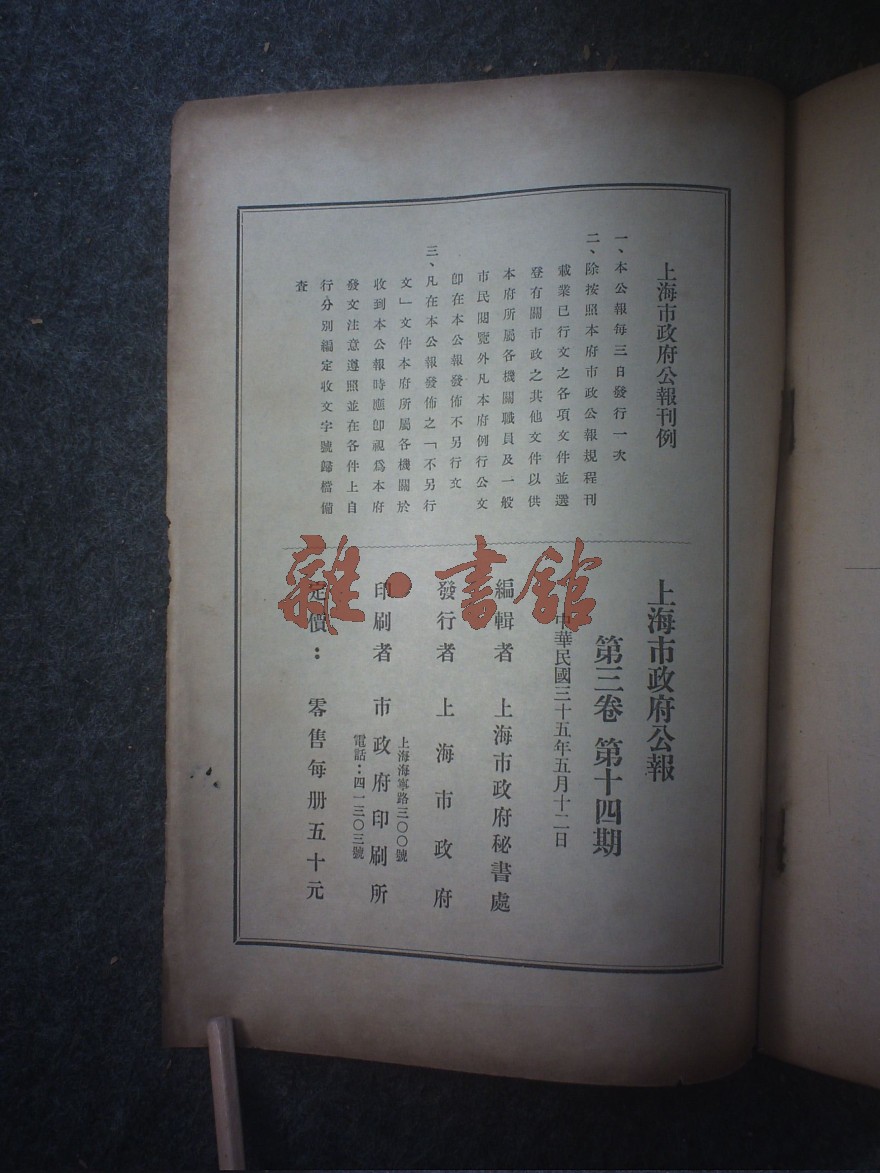 上海市政府公報刊例
一、本公報每三日發行一次
二、除按照本府市政公報規程刊
載業已行文之各項文件並選
登有關市政之其他文件以供
本府所屬各機關職員及一般
市民閱覽外凡本府例行公文
卽在本公報發佈不另行文
三、凡在本公報發佈之「不另行
文」文件本府所屬各機關於
收到本公報時應卽視爲本府
發文注意遵照並在各件上自
行分別編定收文字號歸檔備
查
上海市政府公報
第三卷 第十四期
中華民國三十五年五月十二日
編輯者 上海市政府秘書處
發行者 上海市政府
上海海寧路三〇〇號
印刷者 市政府印刷所
電話：四一三〇三號
定價： 零售每册五十元
雜·書館